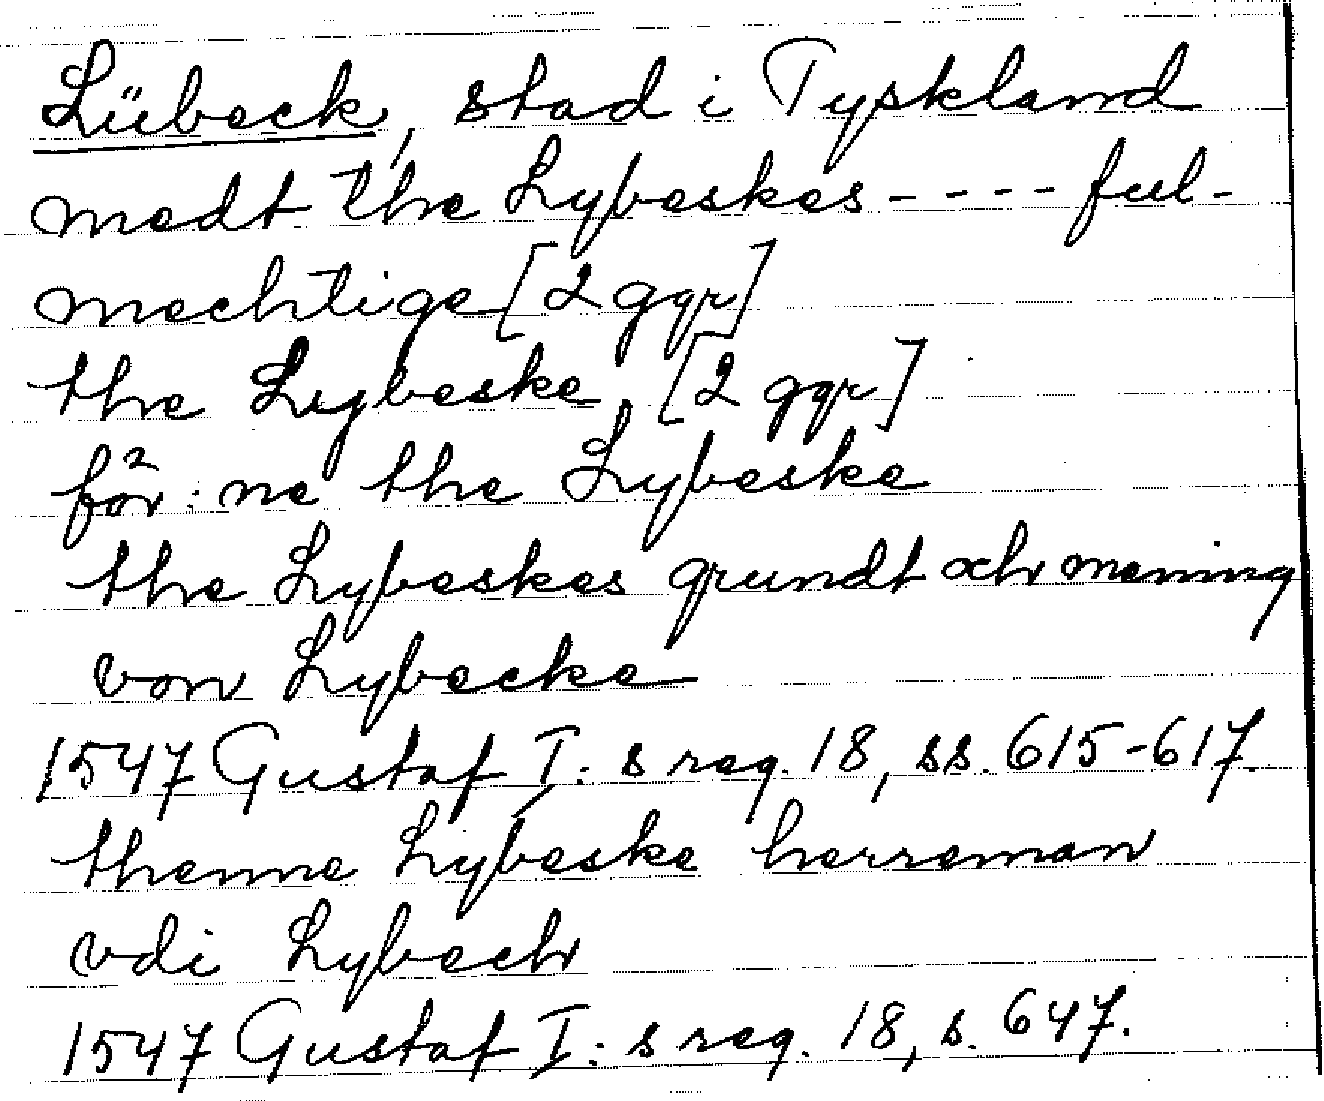 Lübeck, stad i Tyskland
medt the Lybeskes - - - - ful-
mechtige [2 ggr]
the Lygbeske [2 ggr]
för:ne the Lybeske
the Lybeskes grundt och mening
von Lybecke
1547 Gustaf I:s reg. 18, ss. 615-617.
thenne Lybeske herreman
vdi Lybech
1547 Gustaf I:s reg. 18, s. 647.